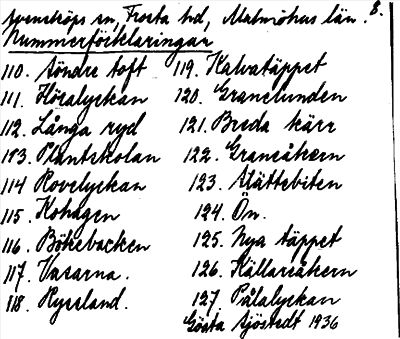 Svensköps sn, Frosta hd, Malmöhus län. 8.
Nummerförklaringar
110. Söndre toft
111. Höralyckan
112. Långa ryd
113. Plantskolan
114 Rovelyckan
115. Kohagen
116. Bökebacken
117. Vasarna.
118. Ryssland.
119. Kalvatäppet
120. Granelunden
121. Breda kärr
122. Granåkern
123. Slättebiten
124. Ön.
125. Nya täppet
126. Källareåkern
127. Pålalyckan
Gösta Sjöstedt 1936